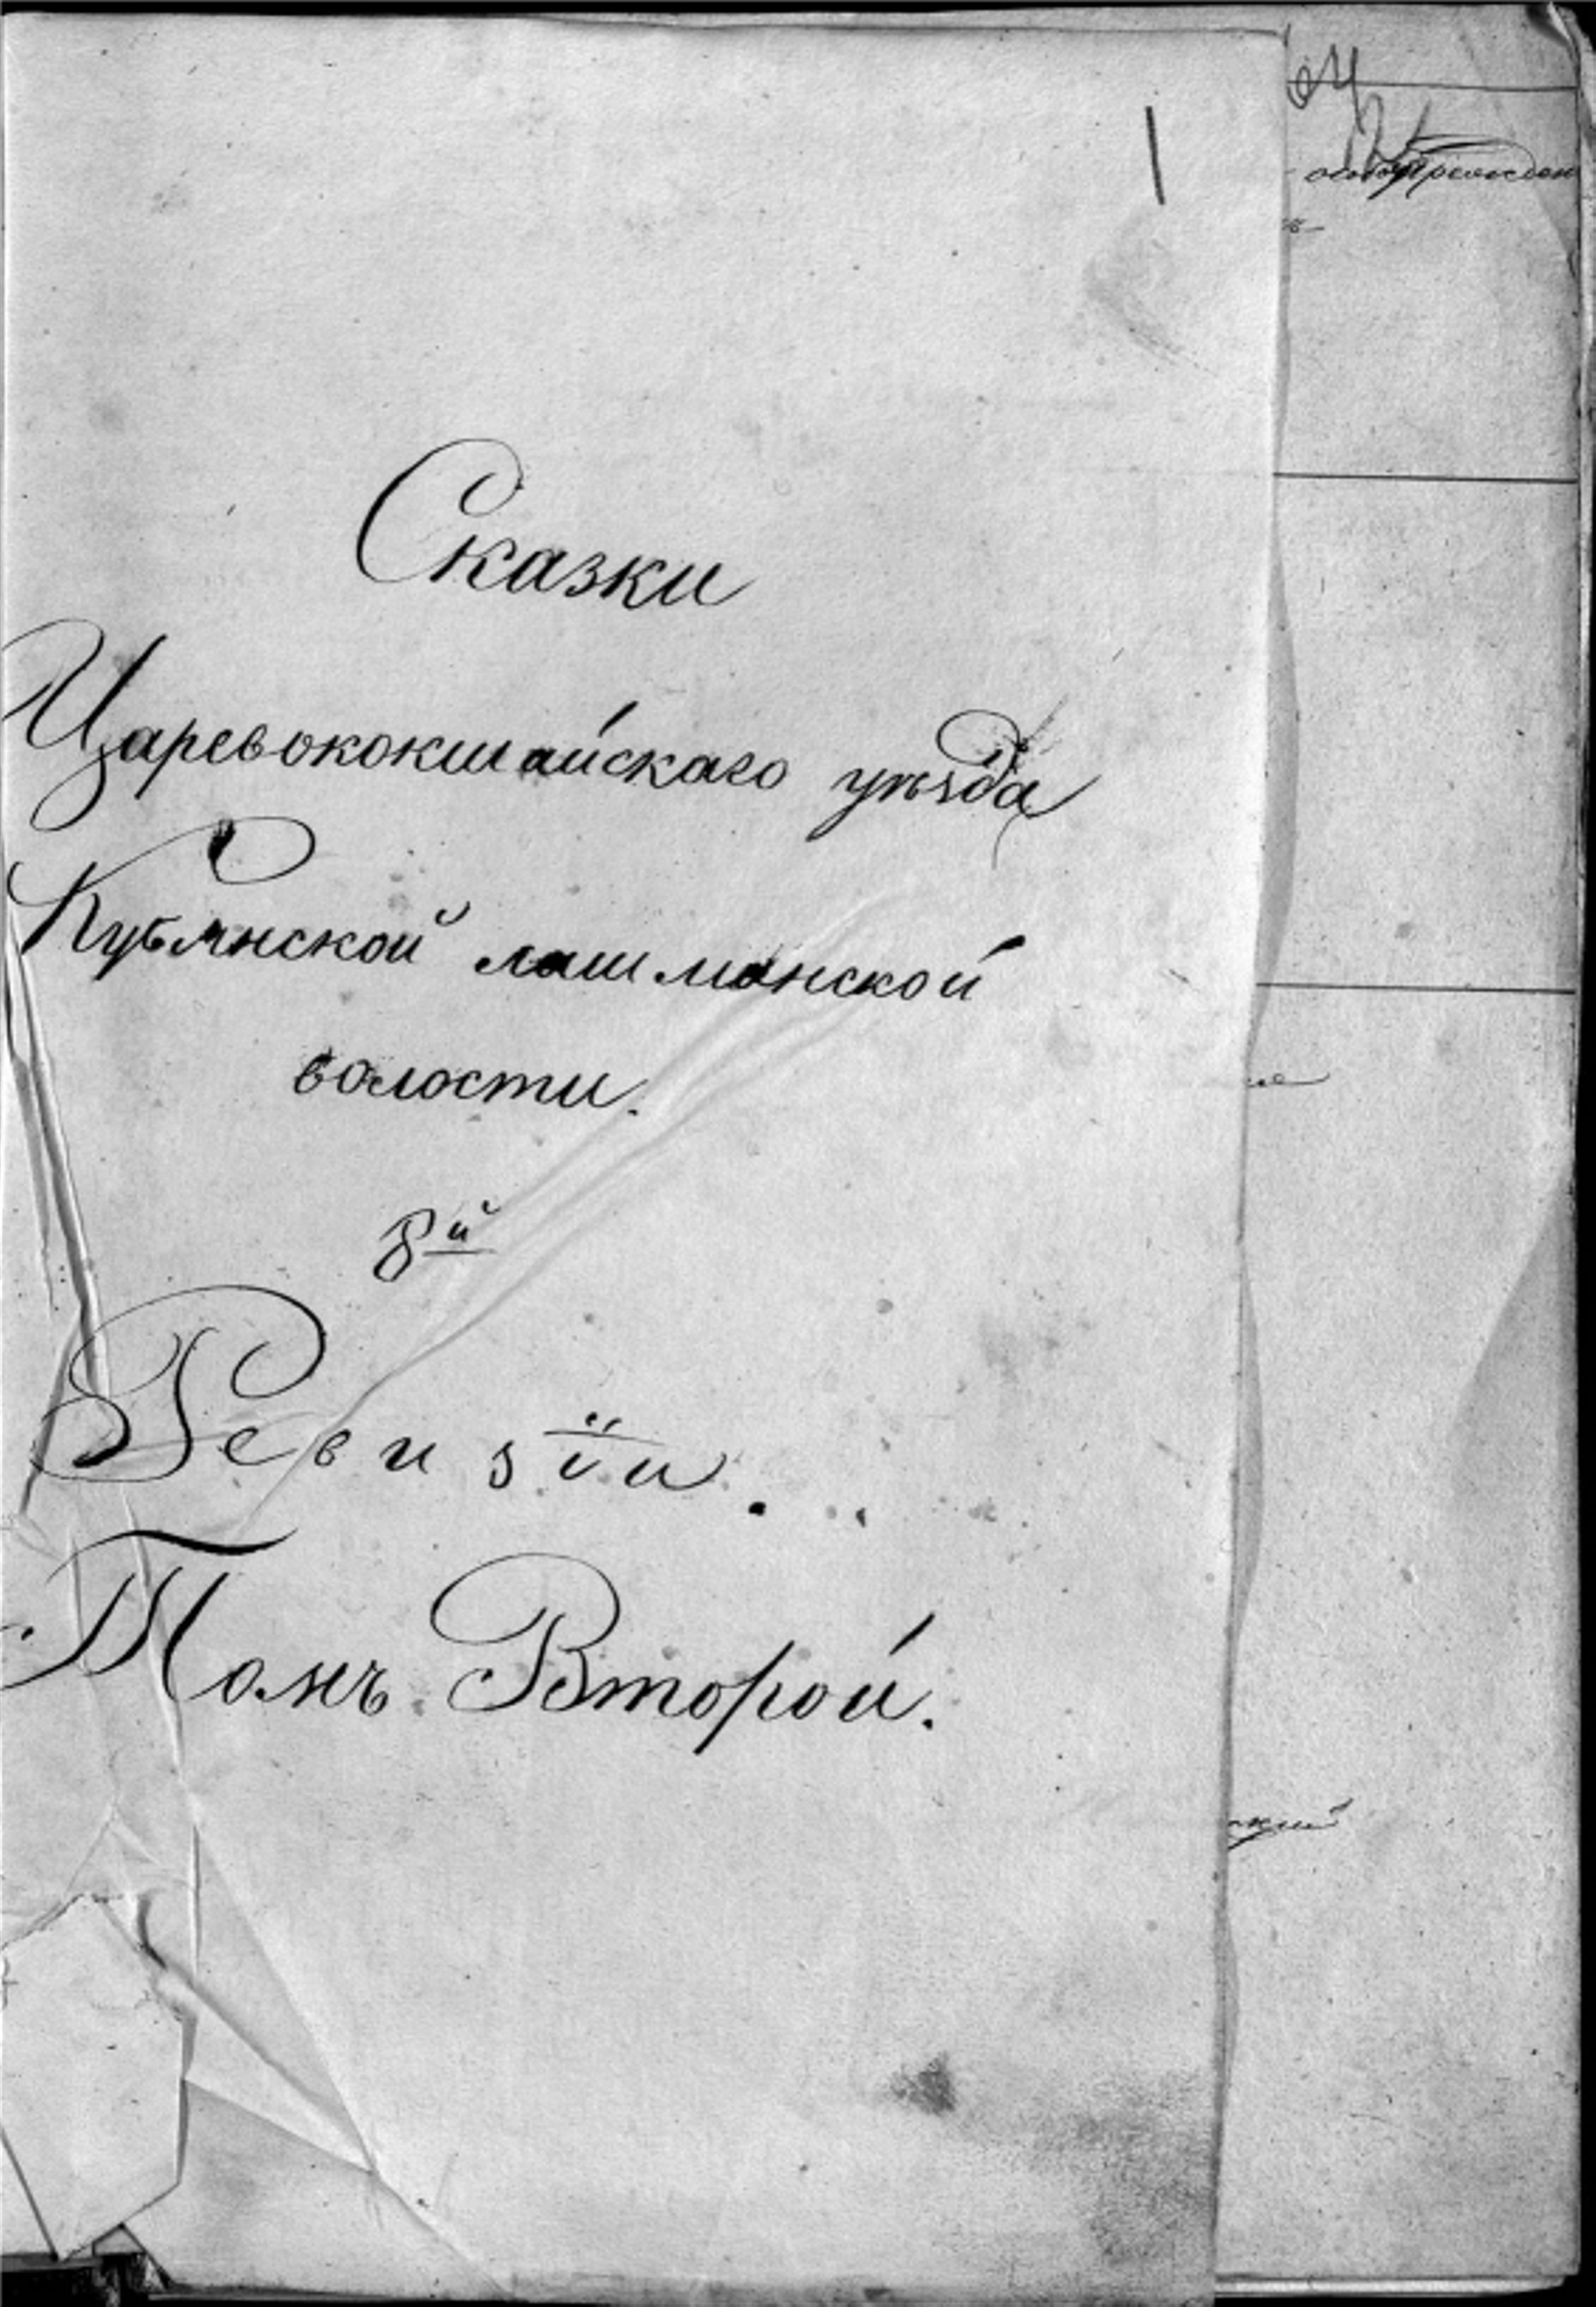 Сказки
Царевококшайскаго уѣзда
Кубянской лашманской
волости.
8й
Ревизіи.
Томъ Второй.